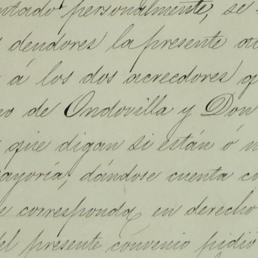 ntado personalmente, se
deudores la presente
á los dos acreedores q
no de Ondovilla y Don
que digan si están ó n
ayoría, dándose cuenta co
e corresponda en derecho
el presente convenio pidió